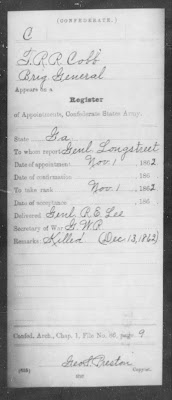 (CONFEDERATE.)
C
T.R.R. Cobb
Brig General
Appears on a
Register
of Appointments, Confederate States Army.
State Ga
To whom report Genl. Longstreet
Date of appointment Nov. 1 1862
Date of confirmation 186
To take rank Nov. 1 1862
Date of acceptance 186
Delivered Genl. R.E. Lee
Secretary of War G.W.R.
Remarks: Killed (Dec 13, 1862)
Confed. Arch., Chap. 1, File No. 86, page 9
Geo. T. Preston
Copyist.